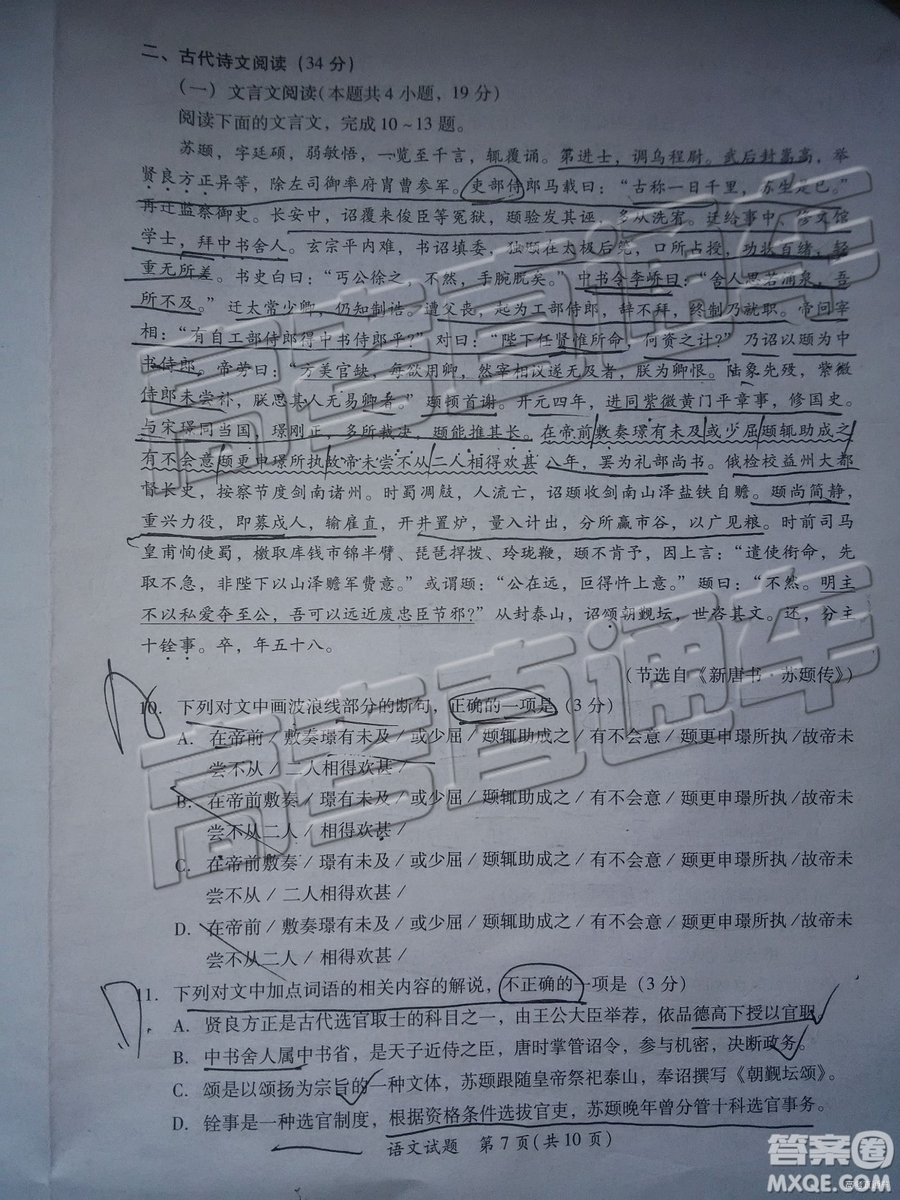 二、古代诗文阅读（34 分）
（一）文言文阅读（本题共 4 小题，19 分）
阅读下面的文言文，完成 10～13 题。
苏颋，字廷硕，弱敏悟，一览至千言，辄覆诵。第进士，调乌程尉。武后封嵩高，举
贤良方正异等，除左司御率府胄曹参军。吏部侍郎马载曰：“古称一日千里，苏生是已。”
再迁监察御史。长安中，诏覆来俊臣等冤狱，颋验发其诬，多从洗宥。迁给事中、修文馆
学士，拜中书舍人。玄宗平内难，书诏填委，独颋在太极后阁，口所占授，功状百绪，轻
重无所差。书史白曰：“丐公徐之，不然，手腕脱矣。”中书令李峤曰：“舍人思若涌泉，吾
所不及。”迁太常少卿，仍知制诰。遭父丧，起为工部侍郎，辞不拜，终制乃就职。帝问宰
相：“有自工部侍郎得中书侍郎乎？”对曰：“陛下任贤惟所命，何资之计？”乃诏以颋为中
书侍郎。帝劳曰：“方美官缺，每欲用卿，然宰相议遂无及者，朕为卿恨。陆象先殁，紫微
侍郎未尝补，朕思其人无易卿者。”颋顿首谢。开元四年，进同紫微黄门平章事，修国史。
与宋璟同当国，璟刚正，多所裁决，颋能推其长。在帝前敷奏璟有未及或少屈颋辄助成之
有不会意颋更申璟所执故帝未尝不从二人相得欢甚 八年，罢为礼部尚书。俄检校益州大都
督长史，按察节度剑南诸州。时蜀凋敝，人流亡，诏颋收剑南山泽盐铁自赡。颋尚简静，
重兴力役，即募戍人，输雇直，开井置炉，量入计出，分所赢市谷，以广见粮。时前司马
皇甫恂使蜀，檄取库钱市锦半臂、琵琶捍拨、玲珑鞭，颋不肯予，因上言：“遣使衔命，先
取不急，非陛下以山泽赡军费意。”或谓颋：“公在远，叵得忤上意。”颋曰：“不然。明主
不以私爱夺至公，吾可以远近废忠臣节邪？”从封泰山，诏颂朝觐坛，世咨其文。还，分主
十铨事。卒，年五十八。
（节选自《新唐书·苏颋传》）
10. 下列对文中画波浪线部分的断句，正确的一项是（3 分）
A. 在帝前 / 敷奏璟有未及 / 或少屈 / 颋辄助成之 / 有不会意 / 颋更申璟所执 / 故帝未
尝不从 / 二人相得欢甚 /
B. 在帝前敷奏 / 璟有未及 / 或少屈 / 颋辄助成之 / 有不会意 / 颋更申璟所执 / 故帝未
尝不从二人 / 相得欢甚 /
C. 在帝前敷奏 / 璟有未及 / 或少屈 / 颋辄助成之 / 有不会意 / 颋更申璟所执 / 故帝未
尝不从 / 二人相得欢甚 /
D. 在帝前 / 敷奏璟有未及 / 或少屈 / 颋辄助成之 / 有不会意 / 颋更申璟所执 / 故帝未
尝不从二人 / 相得欢甚 /
11. 下列对文中加点词语的相关内容的解说，不正确的一项是（3 分）
A. 贤良方正是古代选官取士的科目之一，由王公大臣举荐，依品德高下授以官职。
B. 中书舍人属中书省，是天子近侍之臣，唐时掌管诏令，参与机密，决断政务。
C. 颂是以颂扬为宗旨的一种文体，苏颋跟随皇帝祭祀泰山，奉诏撰写《朝觐坛颂》。
D. 铨事是一种选官制度，根据资格条件选拔官吏，苏颋晚年曾分管十科选官事务。
语文试题 第 7 页（共 10 页）
高考直通车
高考直通车
答案圈
MXQE.COM